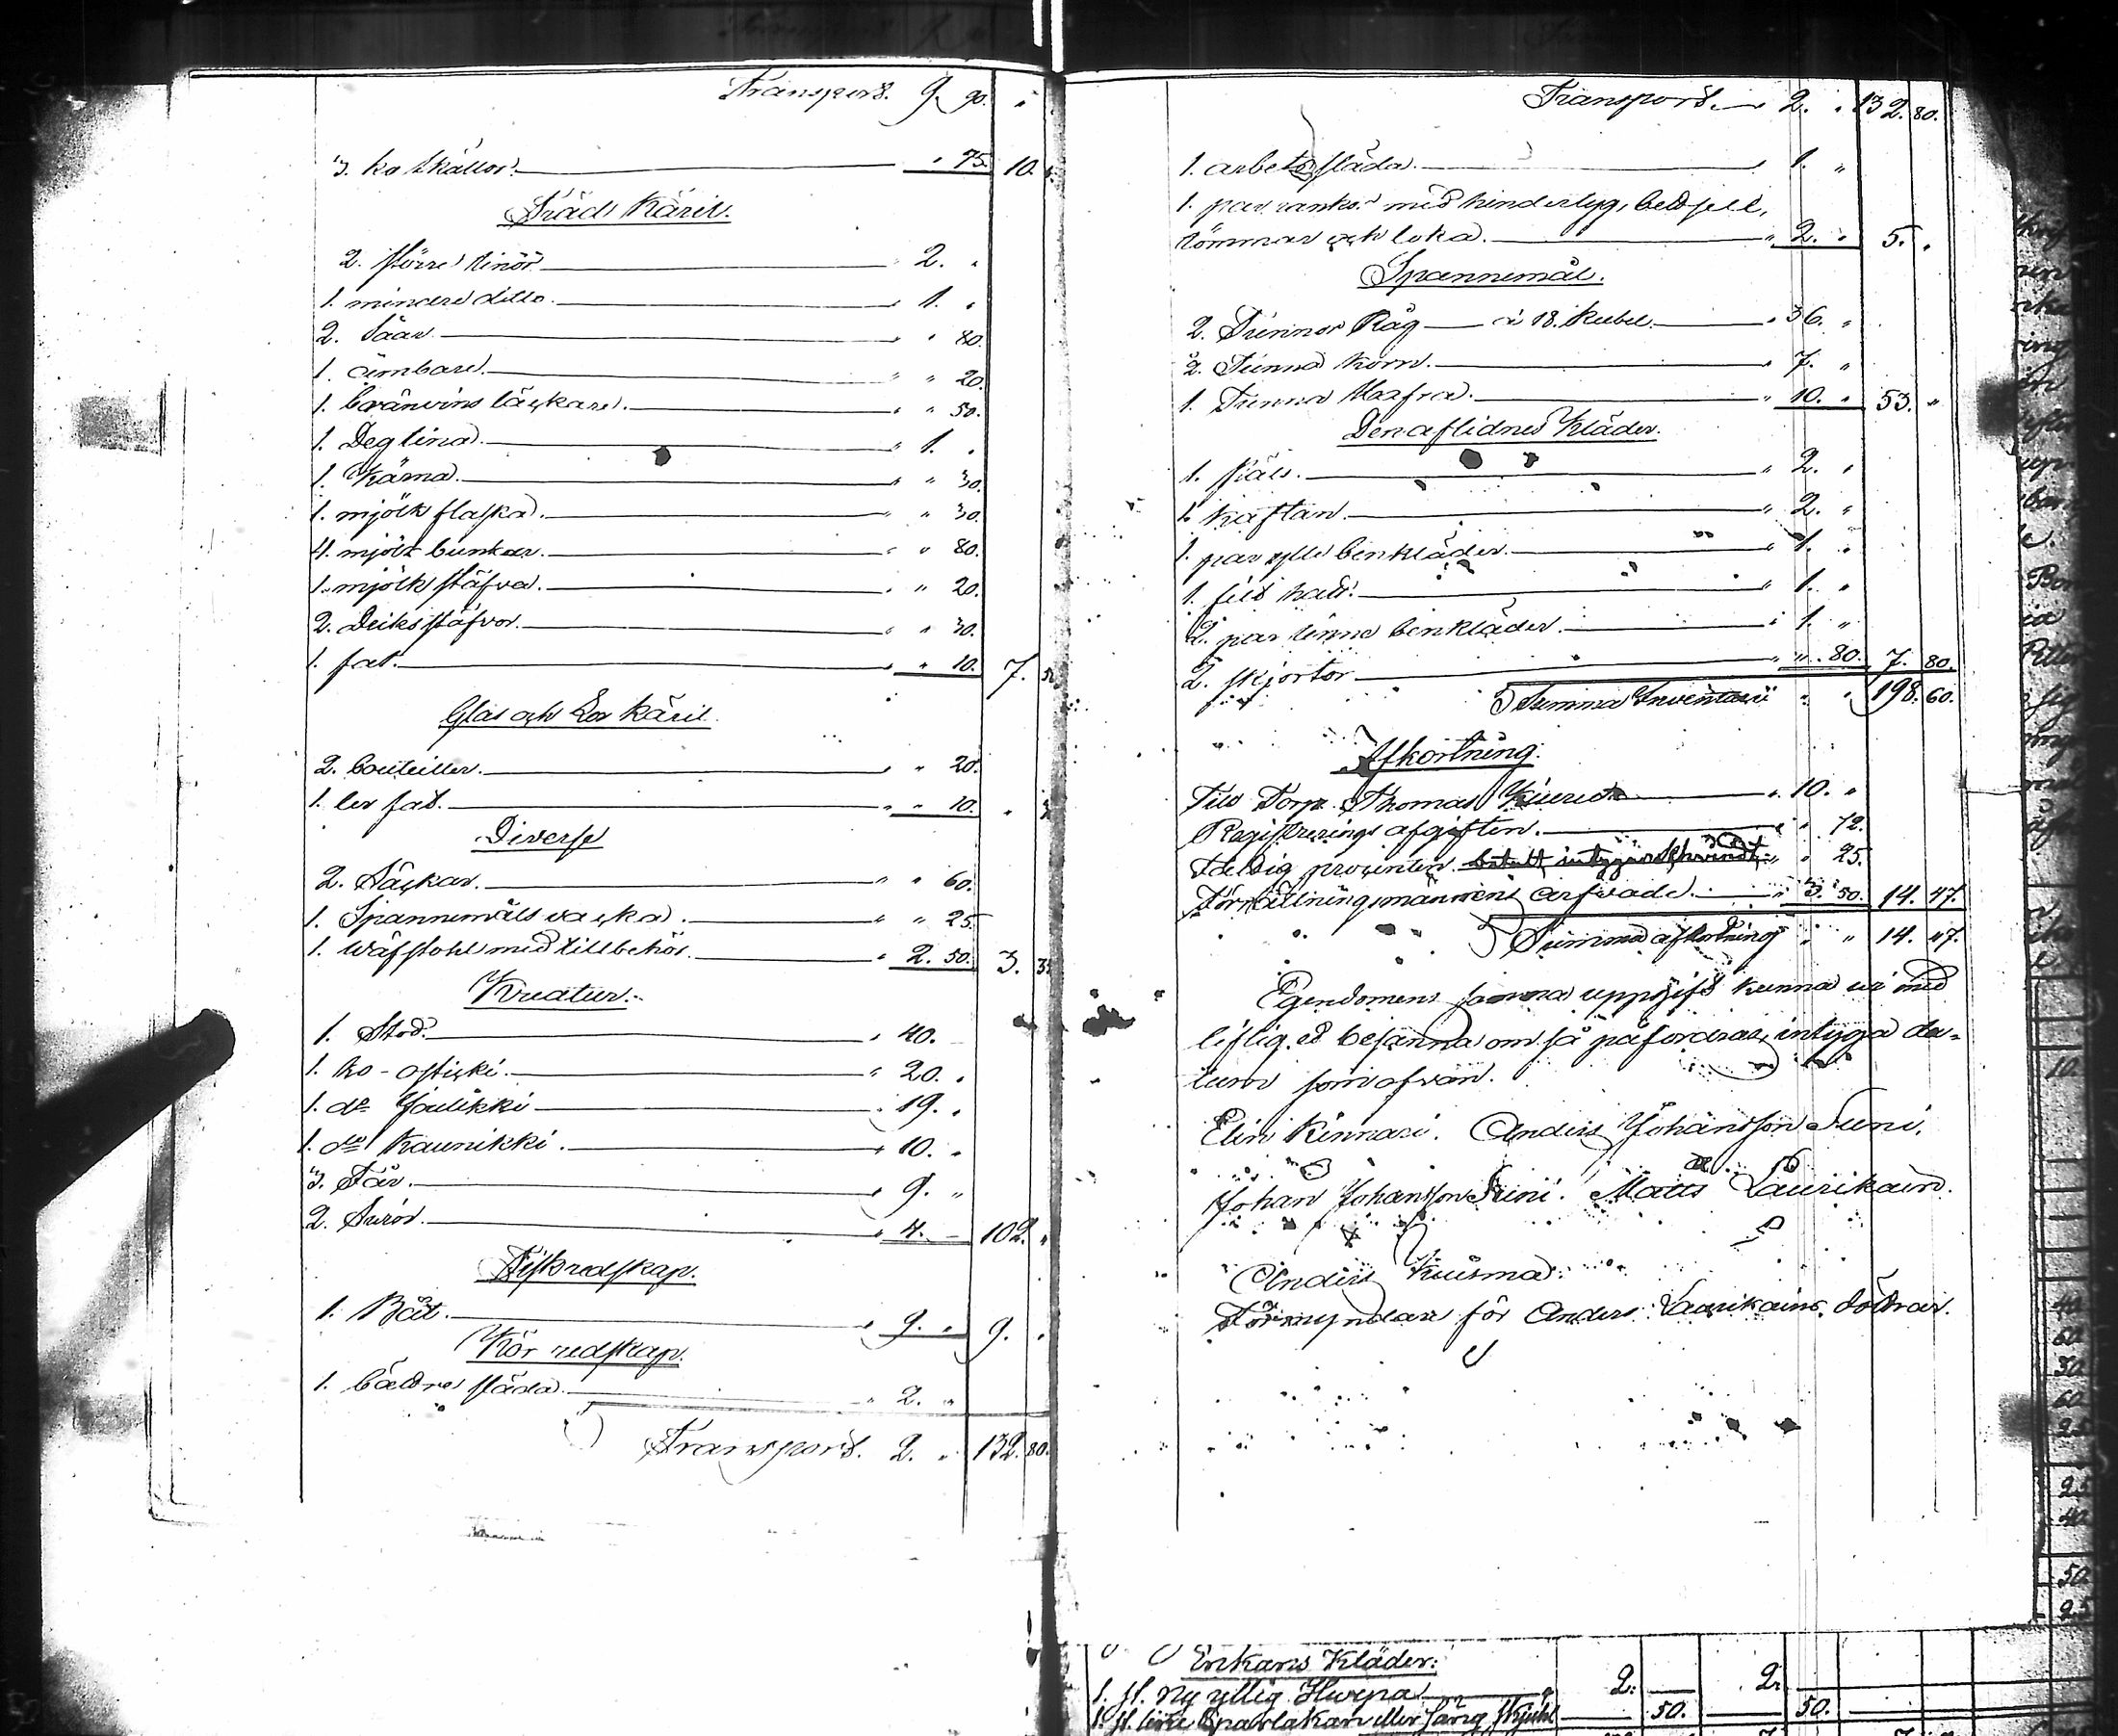 Transport. 9. 90.
3. ko skällor. " 75. 10.
Träd Käril.
2. större tinor 2. "
1. mindre ditto. 1. "
2. Såar. " 80.
1. ämbare. " 20.
1. bränvins läckare. " 50.
1. Degtina. 1. "
1. Kärna. " 30.
1. mjölk flaska. " 30.
4. mjölk bunkar. " 80.
1. mjölk stäfva. " 20.
2. Driks stäfvor. " 30.
1. fat. " 10. 7.
Glas och Ler Käril.
2. bouteiller. " 20.
1. ler fat. " 10.
Diverse
2. Säckar. " 60.
1. Spannemåls vacka. " 25.
1. Wäfstohl med tillbehör. 2. 50. 3. 35
Kreatur.
1. Sto. 40.
1. ko - 20. "
1. do 19. "
1. do Kaunikki. 10. "
3. Får. 9. "
2. Suror. 4. - 102. "
Fiskredskap.
1. Båt. 9. " 9. "
Kör redskap.
1. bättre släda. 2. "
Transport. 2. " 132. 80.
Transport. 2. " 132. 80.
1. arbets släda. 1. "
1. par rankor med hindertyg, betsel,
tömmar och loka. 2. " 5. "
Spannemål.
2. Tunnor Råg à 18. Rubel. 36. "
Tunna Korn. 7. "
1. Tunna Hafra. 10. " 53. "
Den aflidnes Kläder.
1. päls. 2. "
1. kaftan. 2. "
1. par ylle benkläder. 1. "
1. filt hatt. 1. "
2. par linne benkläder. 1. "
2. skjortor " 80. 7. 80.
Summa Inventarii 198. 60.
Afkortning.
Till Torp. Thomas 10. "
Registrerings afgiften. " 72.
Fattig procenten. " 25.
Förrättningsmännens arfvode. 3. 50. 14. 47.
Summa afkortning " 14. 47.
Egendomens sanna uppgift kunna vi med
liflig ed besanna om så påfordras, intyga da-
tum som ofvan.
Elin Kinnari. Anders Johansson Suni.
Johan Johansson Suni. Matts Laurikain.
Anders Kuisma.
Förmyndare för Anders Laurikains döttrar.
Enkans Kläder:
1. st. Ny yllig 2. 2.
1. st. Sparlakan eller Säng 50. 50.